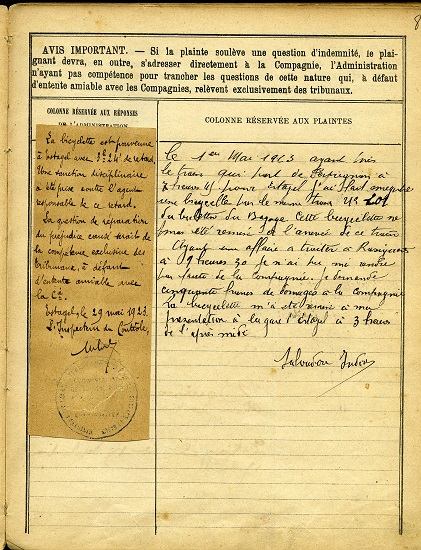 AVIS IMPORTANT. — Si la plainte soulève une question d'indemnité, le plai-
gnant devra, en outre, s'adresser directement à la Compagnie, l'Administration
n'ayant pas compétence pour trancher les questions de cette nature qui, à défaut
d'entente amiable avec les Compagnies, relèvent exclusivement des tribunaux.
COLONNE RÉSERVÉE AUX RÉPONSES
DE L'ADMINISTRATION
La bicyclette est parvenue
à Estagel avec 3h 24' de retard.
Une sanction disciplinaire
a été prise contre l'agent
responsable de ce retard.
La question de réparation
du préjudice causé serait de
la compétence exclusive des
tribunaux, à défaut
d'entente amiable avec
la Cie.
Estagel, le 29 mai 1923
L'Inspecteur du Contrôle,
COLONNE RÉSERVÉE AUX PLAINTES
Le 1er Mai 1923 ayant pris
le train qui part de Perpignan à
7 heures pour Estagel j'ai fait enregistrer
une bicyclette sur le même train
du Bagage Cette bicyclette ne
pas été remise à l'arrivée de ce train
Ayant une affaire à traiter à
à 9 heures 30 je n'ai pu me rendre
par faute de la Compagnie. Je demande
cinquante francs de domages à la Compagnie
la bicyclette m'a été remise à ma
présentation à la gare d'Estagel à 3 heures
de l'après midi
Salvadou
8